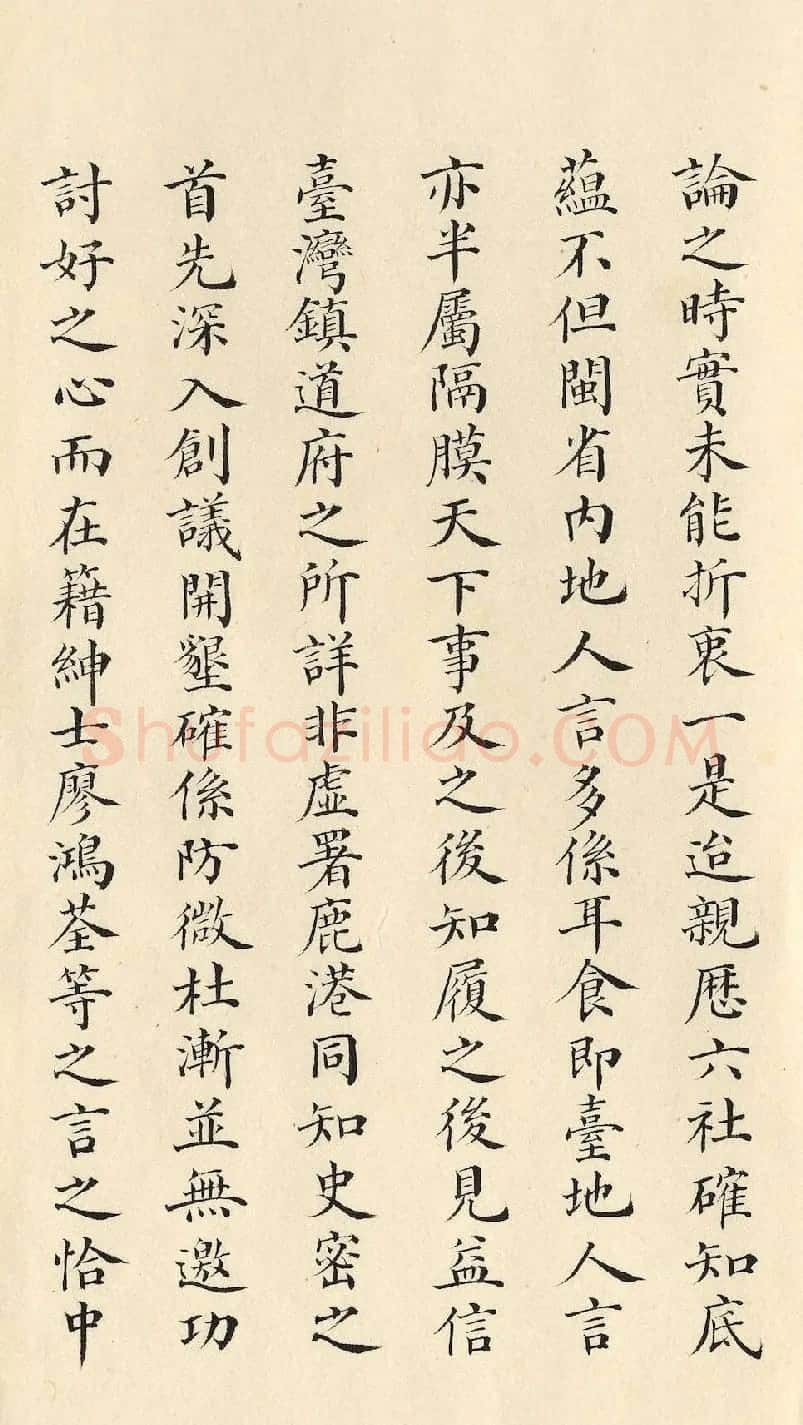 論之時實未能折衷一是迨親歷六社確知底
蘊不但閩省內地人言多係耳食即臺地人言
亦半屬隔膜天下事及之後知履之後見益信
臺灣鎮道府之所詳非虛署鹿港同知史密之
首先深入創議開墾確係防微杜漸並無邀功
討好之心而在籍紳士廖鴻荃等之言之恰中
Shufaziliao.COM